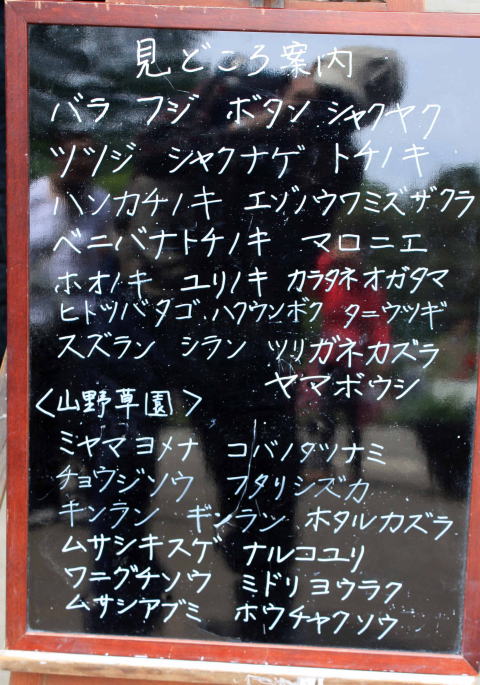 見どころ案内
バラ フジ ボタン シャクヤク
ツツジ シャクナゲ トチノキ
ハンカチノキ エゾノウワミズザクラ
ベニバナトチノキ マロニエ
ホオノキ ユリノキ カラタネオガタマ
ヒトツバタゴ ハクウンボク タニウツギ
スズラン シラン ツリガネカズラ
ヤマボウシ
<山野草園>
ミヤマヨメナ コバノタツナミ
チョウジソウ フタリシズカ
キンラン ギンラン ホタルカズラ
ムサシキスゲ ナルコユリ
ワニグチソウ ミドリヨウラク
ムサシアブミ ホウチャクソウ